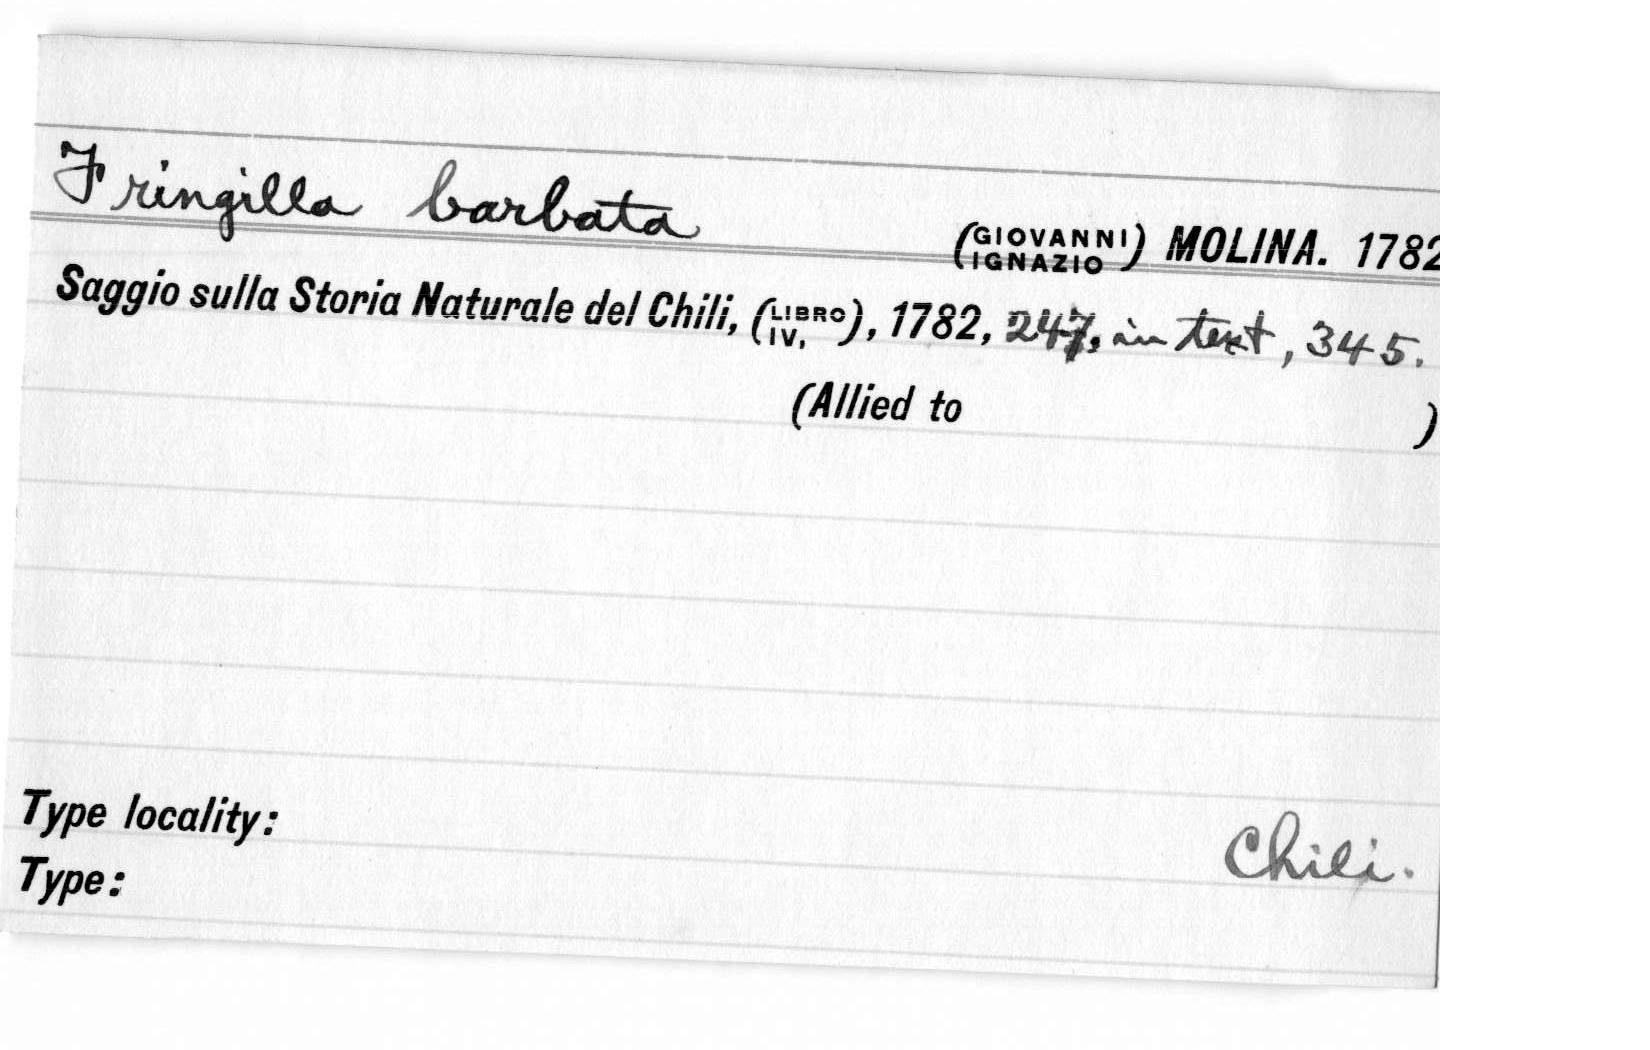 Fringilla barbata
(GIOVANNI IGNAZIO) MOLINA. 1782
Saggio sulla Storia Naturale del Chili, (LIBRO IV,), 1782, 247, in text, 345.
(Allied to )
Type locality: Chili.
Type: